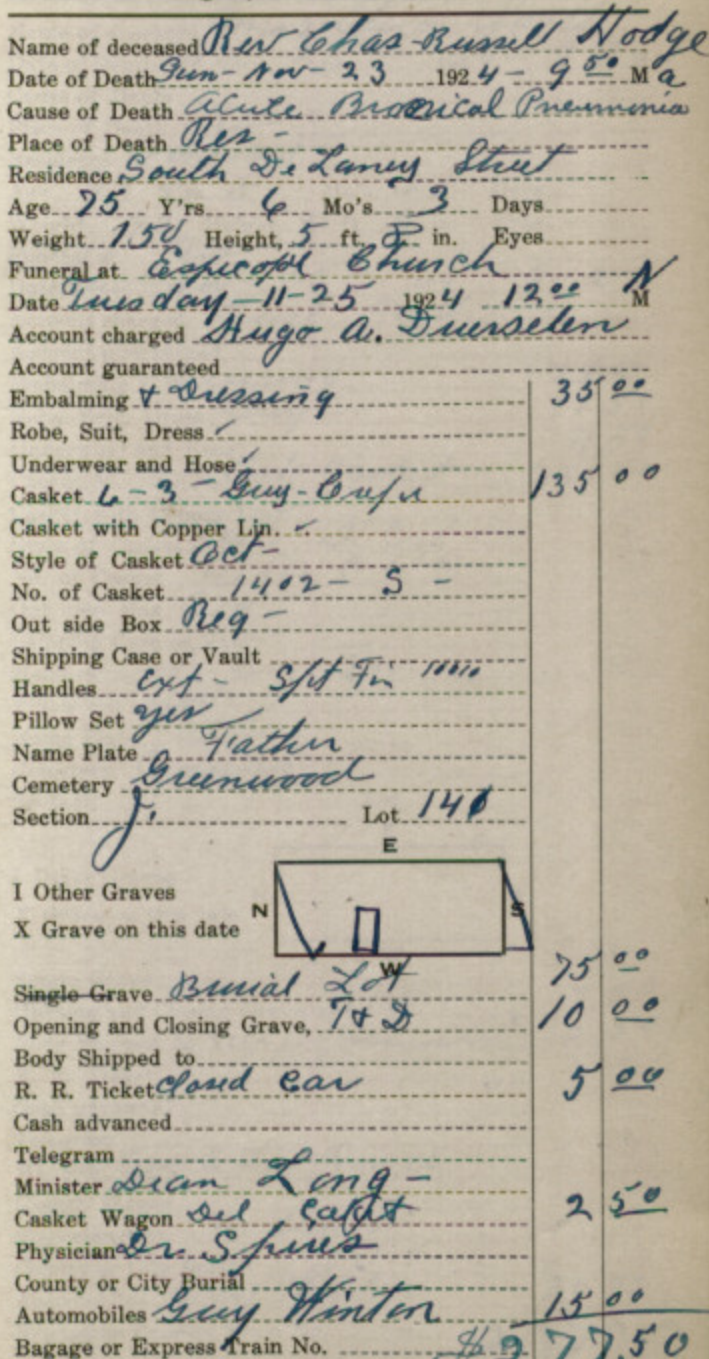 Name of deceased Rev Chas-Russell Hodge
Date of Death Sun-Nov-23 1924-9 50 M a
Cause of Death Acute Pneumonia
Place of Death Res-
Residence South DeLaney Street
Age 75 Y'rs 6 Mo's 3 Days
Weight 150 Height, 5 ft. 8 in. Eyes
Funeral at Espicopl Church
Date Tuesday-11-25 1924 12 00 N M
Account charged Hugo A. Duerselen
Account guaranteed
Embalming & Dressing 35 00
Robe, Suit, Dress ✓
Underwear and Hose ✓
Casket 6-3- 135 00
Casket with Copper Lin. ✓
Style of Casket Oct-
No. of Casket 1402- S -
Out side Box Reg-
Shipping Case or Vault
Handles Ext-
Pillow Set yes
Name Plate Father
Cemetery Greenwood
Section J. Lot 141
E
I Other Graves
N S
X Grave on this date
W
Single Grave Burial Lot 75 00
Opening and Closing Grave, T & D 10 00
Body Shipped to
R. R. Ticket Closed Car 5 00
Cash advanced
Telegram
Minister Dean Long-
Casket Wagon Del Casket 2 50
Physician Dr. Spires
County or City Burial
Automobiles Guy Winton 15 00
Bagage or Express Train No. $277.50